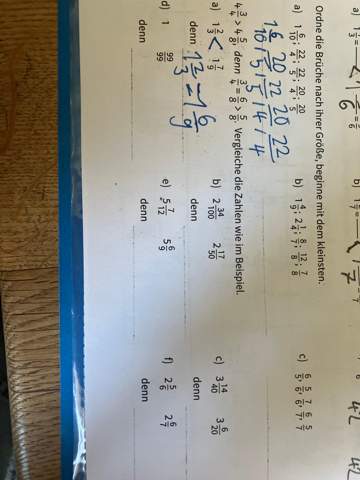 Ordne die Brüche nach ihrer Größe, beginne mit dem kleinsten.
a) 1 6/10; 22/4; 22/5; 20/4; 20/5 b) 1 4/9; 2 1/4; 8/7; 12/8; 7/8 c) 6/5; 5/6; 7/6; 6/7; 5/7
1 6/10, 20/5, 22/5, 20/4, 22/4
4 3/4 > 4 5/8, denn 3/4 = 6/8 > 5/8. Vergleiche die Zahlen wie im Beispiel.
a) 1 2/3 < 1 7/9 b) 2 34/100 2 17/50 c) 3 14/40 3 6/20
denn 1 2/3 = 1 6/9 denn denn
d) 1 99/99 e) 5 7/12 5 6/9 f) 2 5/6 2 6/7
denn denn denn